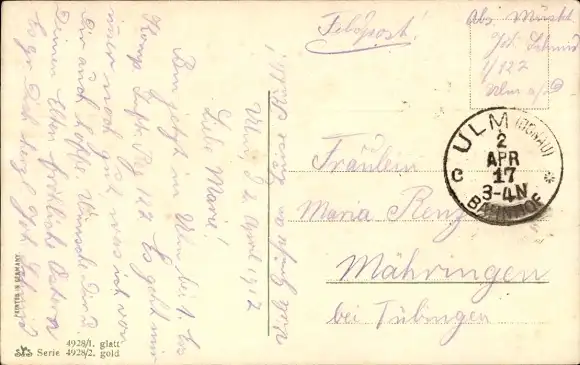 Feldpost!
Abs. Muskt
Joh. Schmid
1/127
Ulm a/D
ULM (DONAU)
2
APR
17
3-4 N
C *
BAHNHOF
Fräulein
Maria Renz
Mähringen
bei Tübingen
Ulm, d. 2. April 1917
Liebe Marie!
Bin jetzt in Ulm bei 1. Ers
Komp. Inftr. Rg. 127. Es geht mir
immer noch gut was ich von
Dir auch hoffe. Wünsche Dir u.
Deinen Eltern fröhliche Ostern
Dich Joh. Schmid
Viele Grüße an
PRINTED IN GERMANY
4928/1. glatt
Serie 4928/2. gold